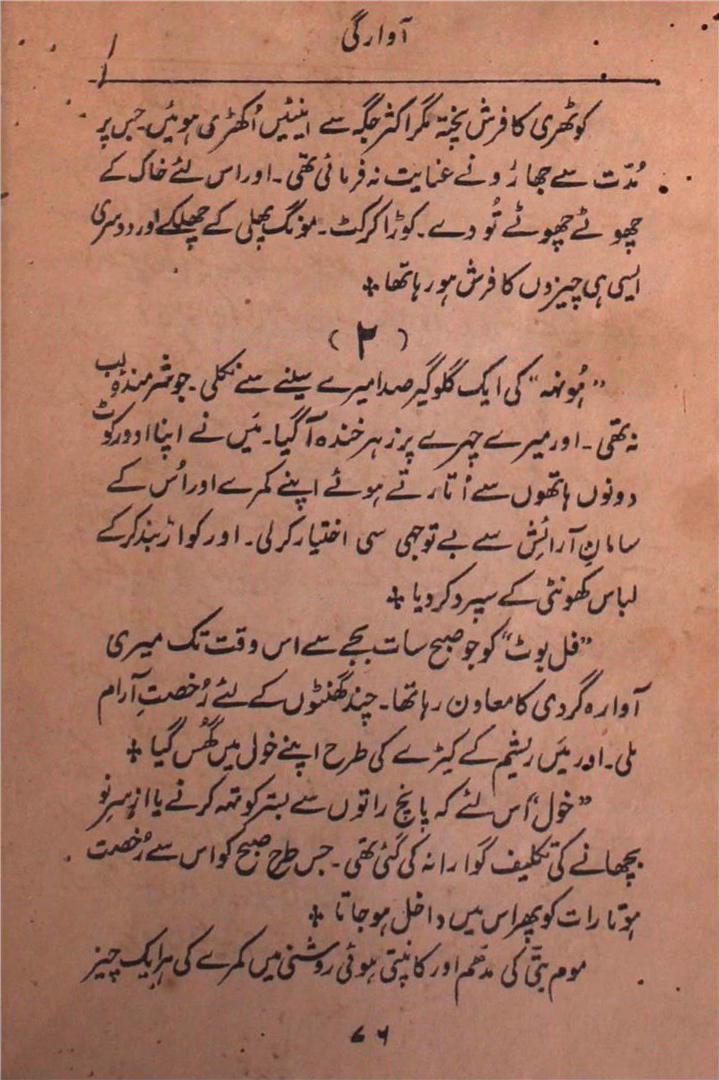 آوارگی
کوٹھری کا فرش پختہ مگر اکثر جگہ سے اینٹیں اُکھڑی ہوئیں۔ جس پر
مُدّت سے جھاڑو نے عنایت نہ فرمائی تھی۔ اور اس لئے خاک کے
چھوٹے چھوٹے تُودے۔ کوڑا کرکٹ۔ مونگ پھلی کے چھلکے اور دوسری
ایسی ہی چیزوں کا فرش ہو رہا تھا ۔
(۲)
"ہُونہہ" کی ایک گلوگیر صدا میرے سینے سے نکلی۔ جو شرمندۂ لب
نہ تھی۔ اور میرے چہرے پر زہر خندہ آ گیا۔ مَیں نے اپنا اوورکوٹ
دونوں ہاتھوں سے اُتارتے ہوئے اپنے کمرے اور اُس کے
سامانِ آرائش سے بے توجہی سی اختیار کر لی۔ اور کواڑ بند کر کے
لباس کھونٹی کے سپرد کر دیا ۔
"فل بوٹ" کو جو صبح سات بجے سے اس وقت تک میری
آوارہ گردی کا معاون رہا تھا۔ چند گھنٹوں کے لئے رُخصتِ آرام
ملی۔ اور مَیں ریشم کے کیڑے کی طرح اپنے خول میں گھُس گیا ۔
"خول" اس لئے کہ پانچ راتوں سے بستر کو تہہ کرنے یا از سرِ نو
بچھانے کی تکلیف گوارا نہ کی گئی تھی۔ جس طرح صبح کو اس سے رُخصت
ہوتا رات کو پھر اس میں داخل ہو جاتا ۔
موم بتّی کی مدّھم اور کانپتی ہوئی روشنی میں کمرے کی ہر ایک چیز
۷۶